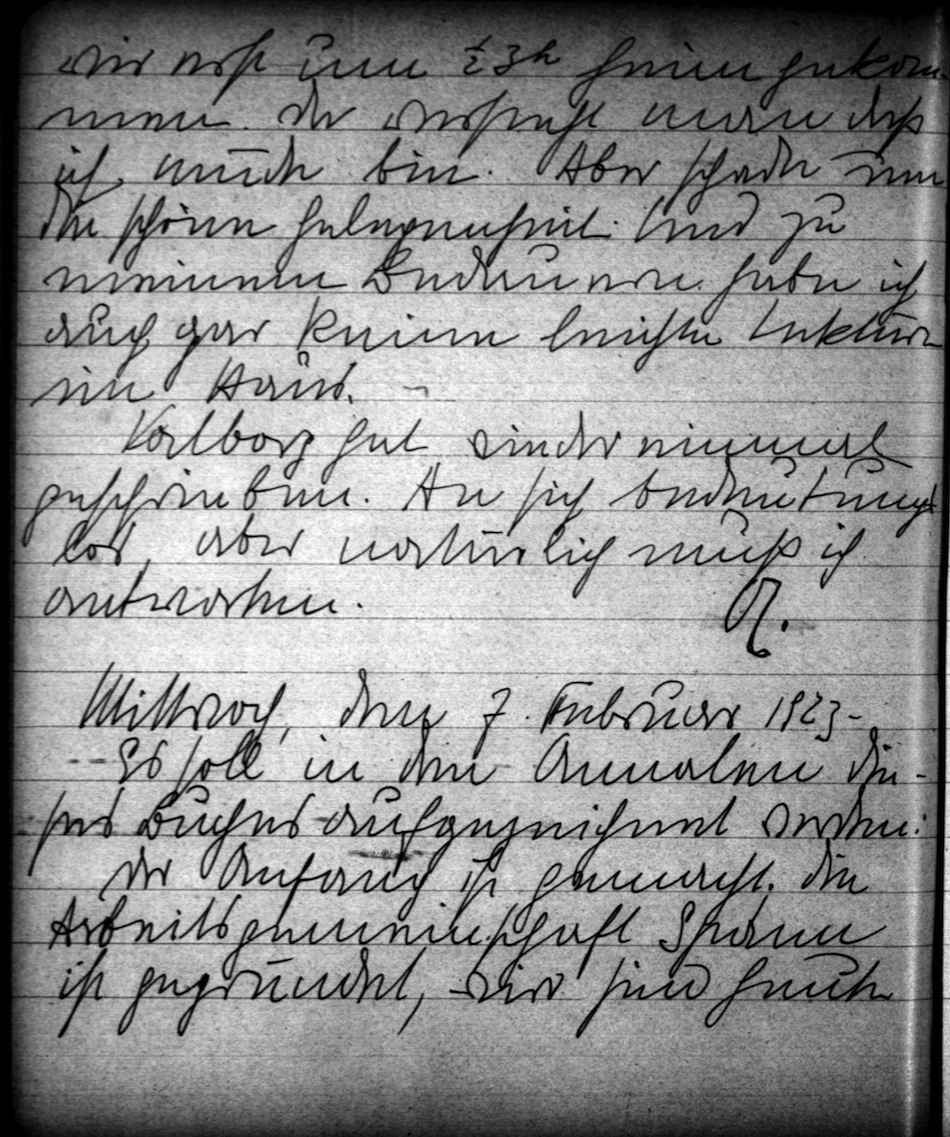 wir erst um ½ 3h heim gekom
men. Da versteht man daß
ich müde bin. Aber schade um
die schöne Gelegenheit. Und zu
meinem Bedauern habe ich
auch gar keine leichte Lektüre
im Haus. -
Valborg hat wieder einmal
geschrieben. An sich bedeutungs
los, aber natürlich muß ich
antworten.
Mittwoch, den 7. Februar 1923-
Es soll in den Annalen die-
ses Buches aufgezeichnet werden:
der Anfang ist gemacht. die
Arbeitsgemeinschaft Spann
ist gegründet, wir sind heute